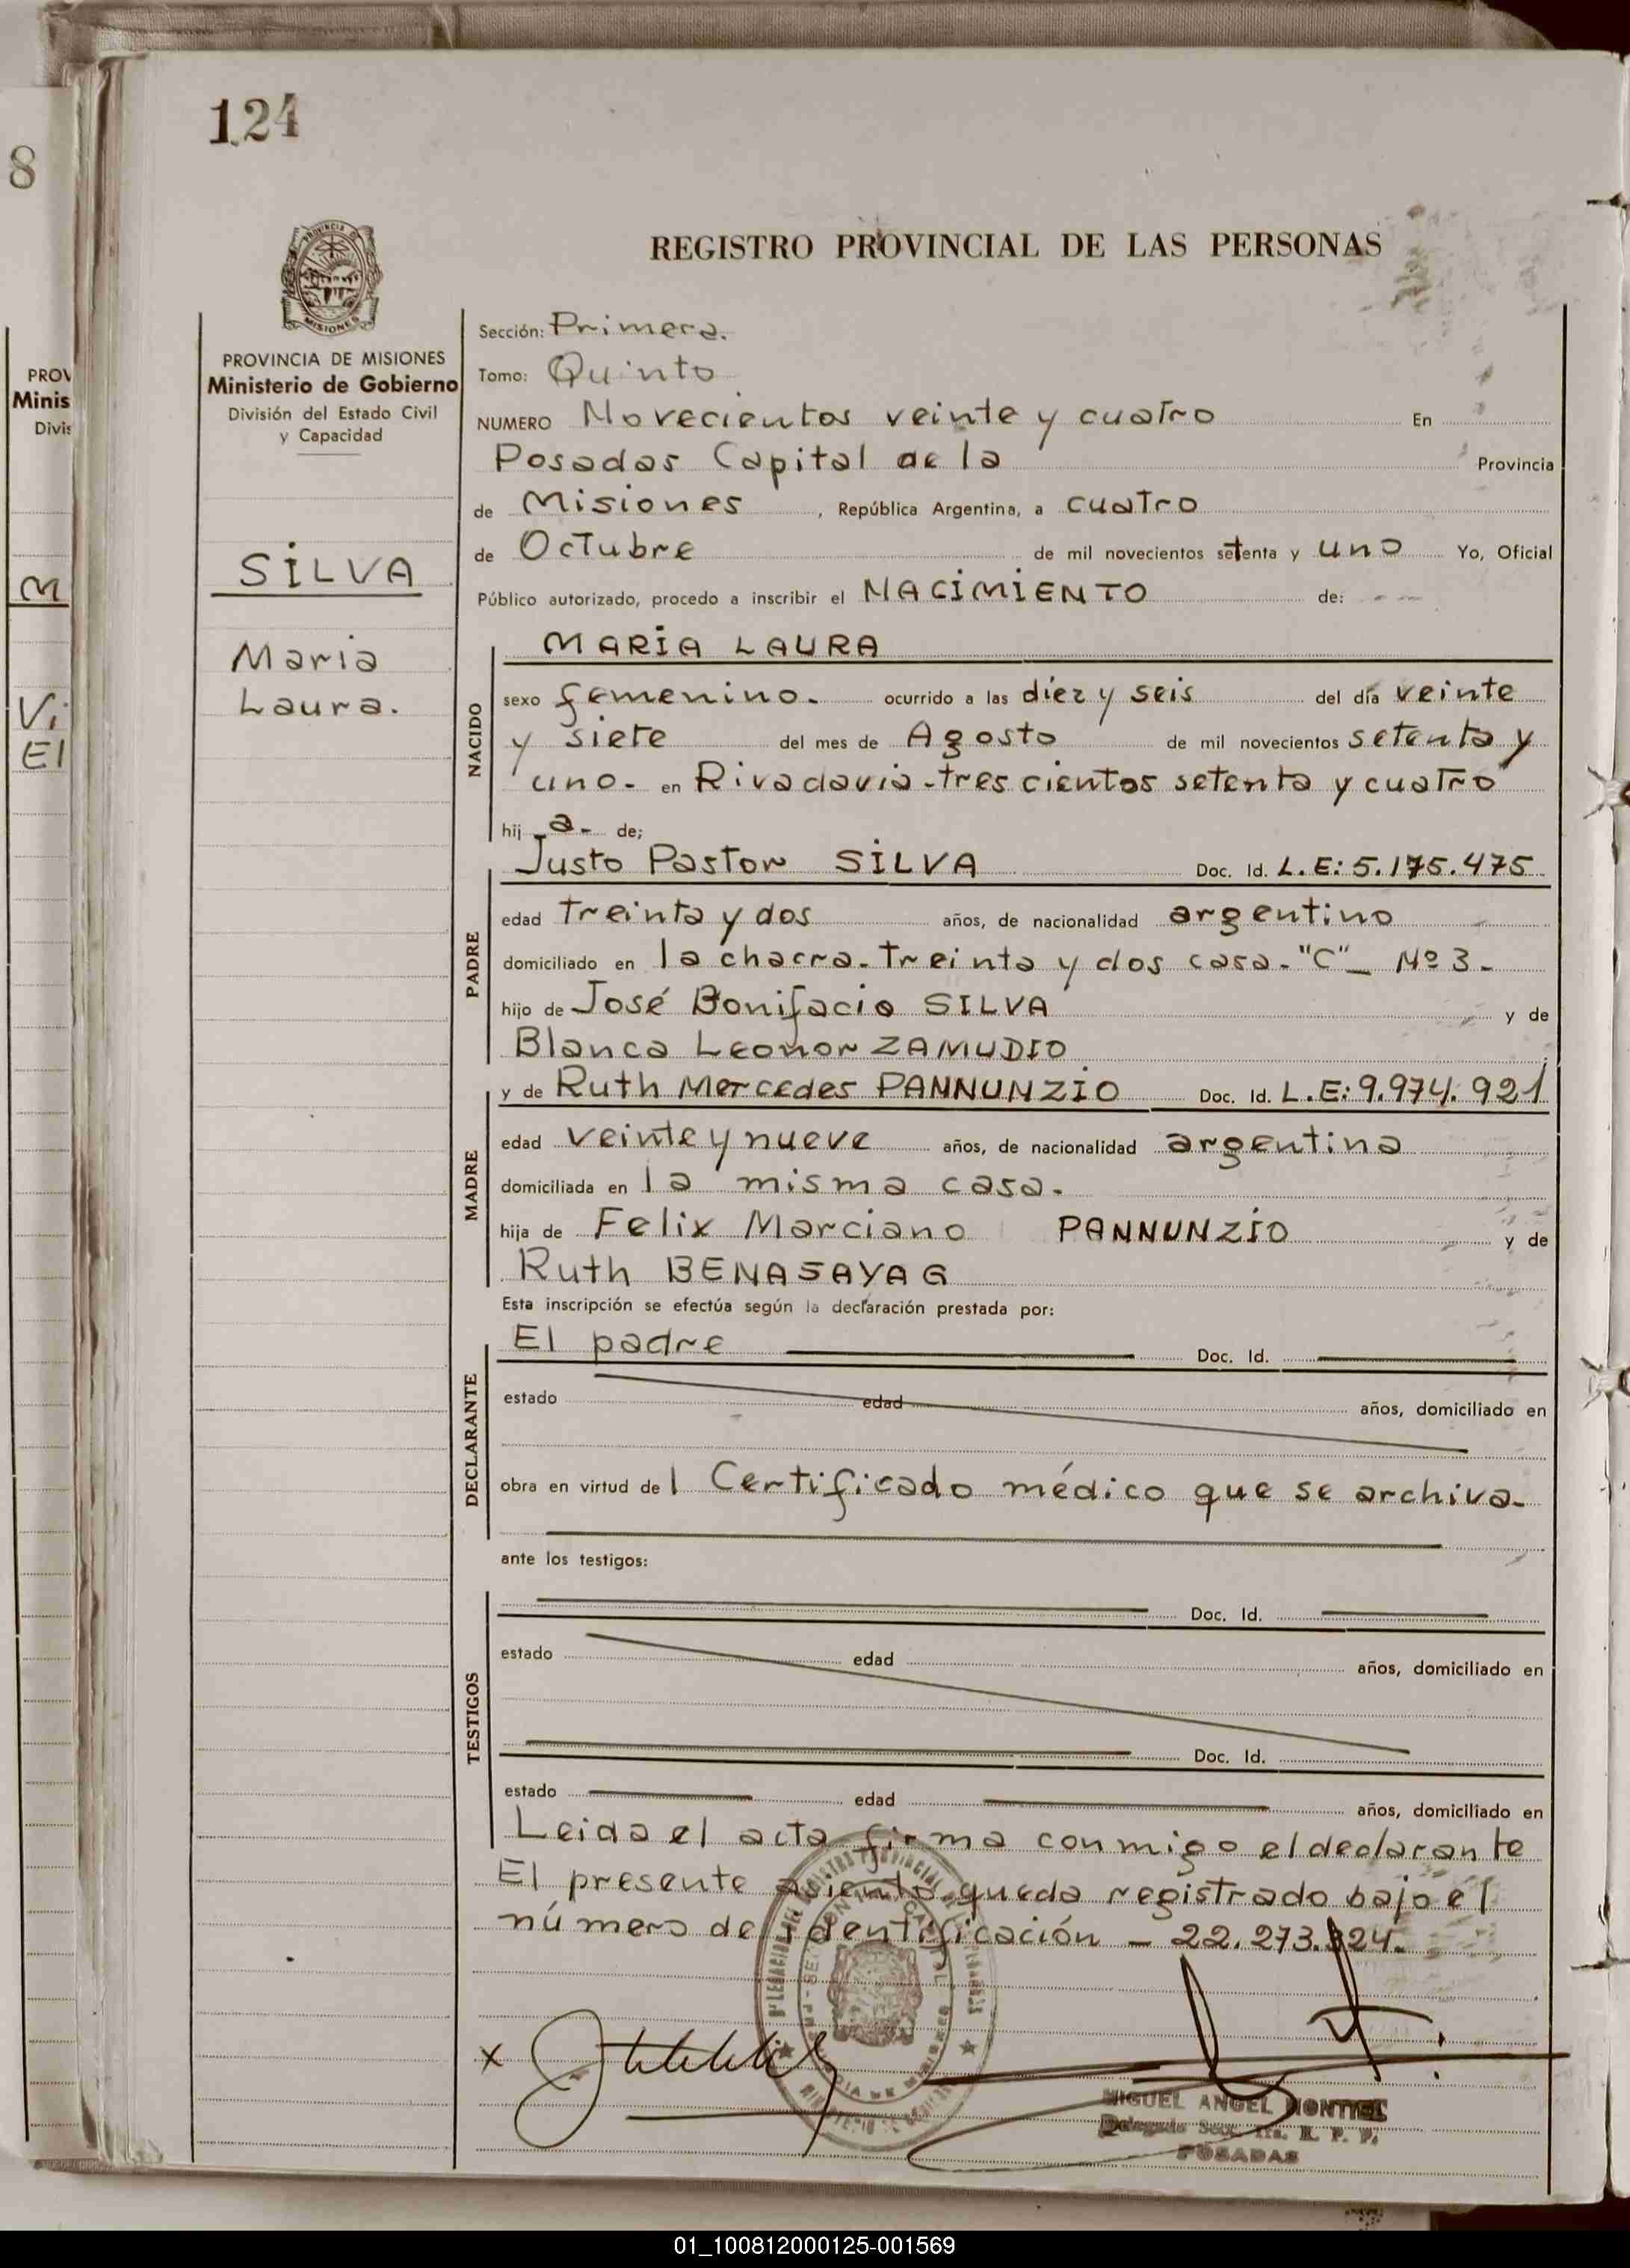 124
8
PROVINCIA DE MISIONES
REGISTRO PROVINCIAL DE LAS PERSONAS
PROVINCIA DE MISIONES
Ministerio de Gobierno
División del Estado Civil
y Capacidad
PROV
Minis
Divis
M
Vi
El
SILVA
Maria
Laura.
Sección: Primera.
Tomo: Quinto
NUMERO Novecientos veinte y cuatro En
Posadas Capital de la Provincia
de Misiones, República Argentina, a cuatro
de Octubre de mil novecientos setenta y uno Yo, Oficial
Público autorizado, procedo a inscribir el NACIMIENTO de: - - -
NACIDO
MARIA LAURA
sexo femenino. ocurrido a las diez y seis del día veinte
y siete del mes de Agosto de mil novecientos setenta y
uno- en Rivadavia-tres cientos setenta y cuatro
hij a- de;
PADRE
Justo Pastor SILVA Doc. Id. L.E: 5.175.475
edad treinta y dos años, de nacionalidad argentino
domiciliado en la chacra-treinta y dos casa-"C"- Nº 3-
hijo de José Bonifacio SILVA y de
Blanca Leonor ZAMUDIO
MADRE
y de Ruth Mercedes PANNUNZIO Doc. Id. L.E: 9.974.921
edad veinte y nueve años, de nacionalidad argentina
domiciliada en la misma casa.
hija de Felix Marciano PANNUNZIO y de
Ruth BENASAYAG
Esta inscripción se efectúa según la declaración prestada por:
DECLARANTE
El padre Doc. Id.
estado edad años, domiciliado en
obra en virtud del Certificado médico que se archiva-
ante los testigos:
TESTIGOS
Doc. Id.
estado edad años, domiciliado en
Doc. Id.
estado edad años, domiciliado en
Leida el acta firma conmigo el declarante
El presente asiento queda registrado bajo el
número de identificación - 22.273.924.
x
MIGUEL ANGEL MONTIEL
Delegado Secc. 1ra. R. P. P.
POSADAS
01_100812000125-001569